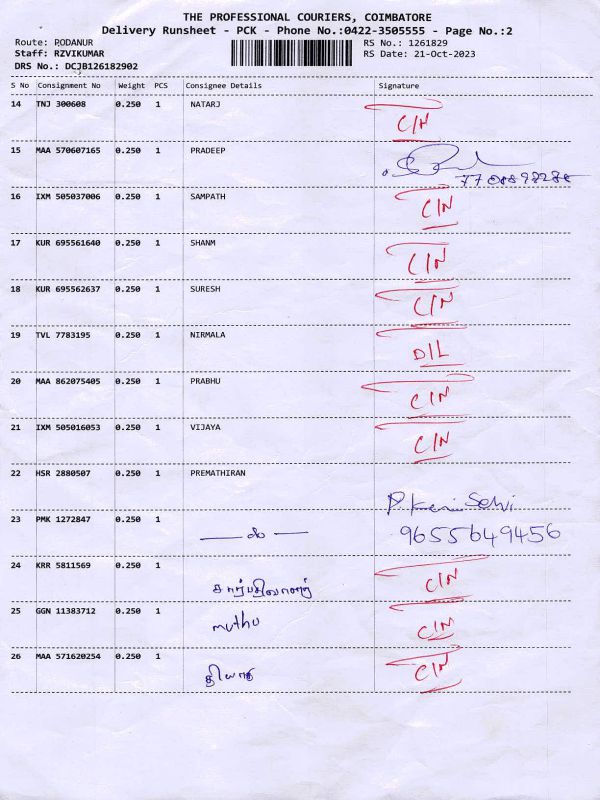 THE PROFESSIONAL COURIERS, COIMBATORE
Delivery Runsheet - PCK - Phone No.:0422-3505555 - Page No.:2
Route: PODANUR RS No.: 1261829
Staff: RZVIKUMAR RS Date: 21-Oct-2023
DRS No.: DCJB126182902
S No Consignment No Weight PCS Consignee Details Signature
14 TNJ 300608 0.250 1 NATARJ C/N
15 MAA 570607165 0.250 1 PRADEEP
16 IXM 505037006 0.250 1 SAMPATH C/N
17 KUR 695561640 0.250 1 SHANM C/N
18 KUR 695562637 0.250 1 SURESH C/N
19 TVL 7783195 0.250 1 NIRMALA D/L
20 MAA 862075405 0.250 1 PRABHU C/N
21 IXM 505016053 0.250 1 VIJAYA C/N
22 HSR 2880507 0.250 1 PREMATHIRAN
23 PMK 1272847 0.250 1 9655649456
24 KRR 5811569 0.250 1 C/N
25 GGN 11383712 0.250 1 muthu C/N
26 MAA 571620254 0.250 1 C/N